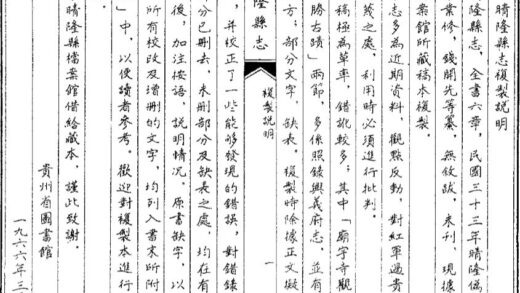 晴隆縣志複製說明
隆縣志，全書六章，民國三十三年晴隆縣
業修，錢開先等纂。無敘跋，未刊，現據
案館所藏稿本複製。
志多為近期資料，觀點反動，對紅軍過貴
蔑之處，利用時必須進行批判。
稿極為草率，錯訛較多；其中「廟宇寺觀
勝古蹟」兩節，多係照錄興義府志，並有
方；部分文字，缺表。複製時除據正文擬
隆縣志
複製說明
一
，並校正了一些能够發現的錯誤，對錯錄
分已刪去，未刪部分及缺表之處，均在有
後，加注按語，說明情況。原書缺字，以
所有校改及增刪的文字，均列入書末所附
」中，以便讀者參考。歡迎對複製本進行
。
晴隆縣檔案館借給藏本，謹此致謝。
貴州省圖書館
一九六六年三